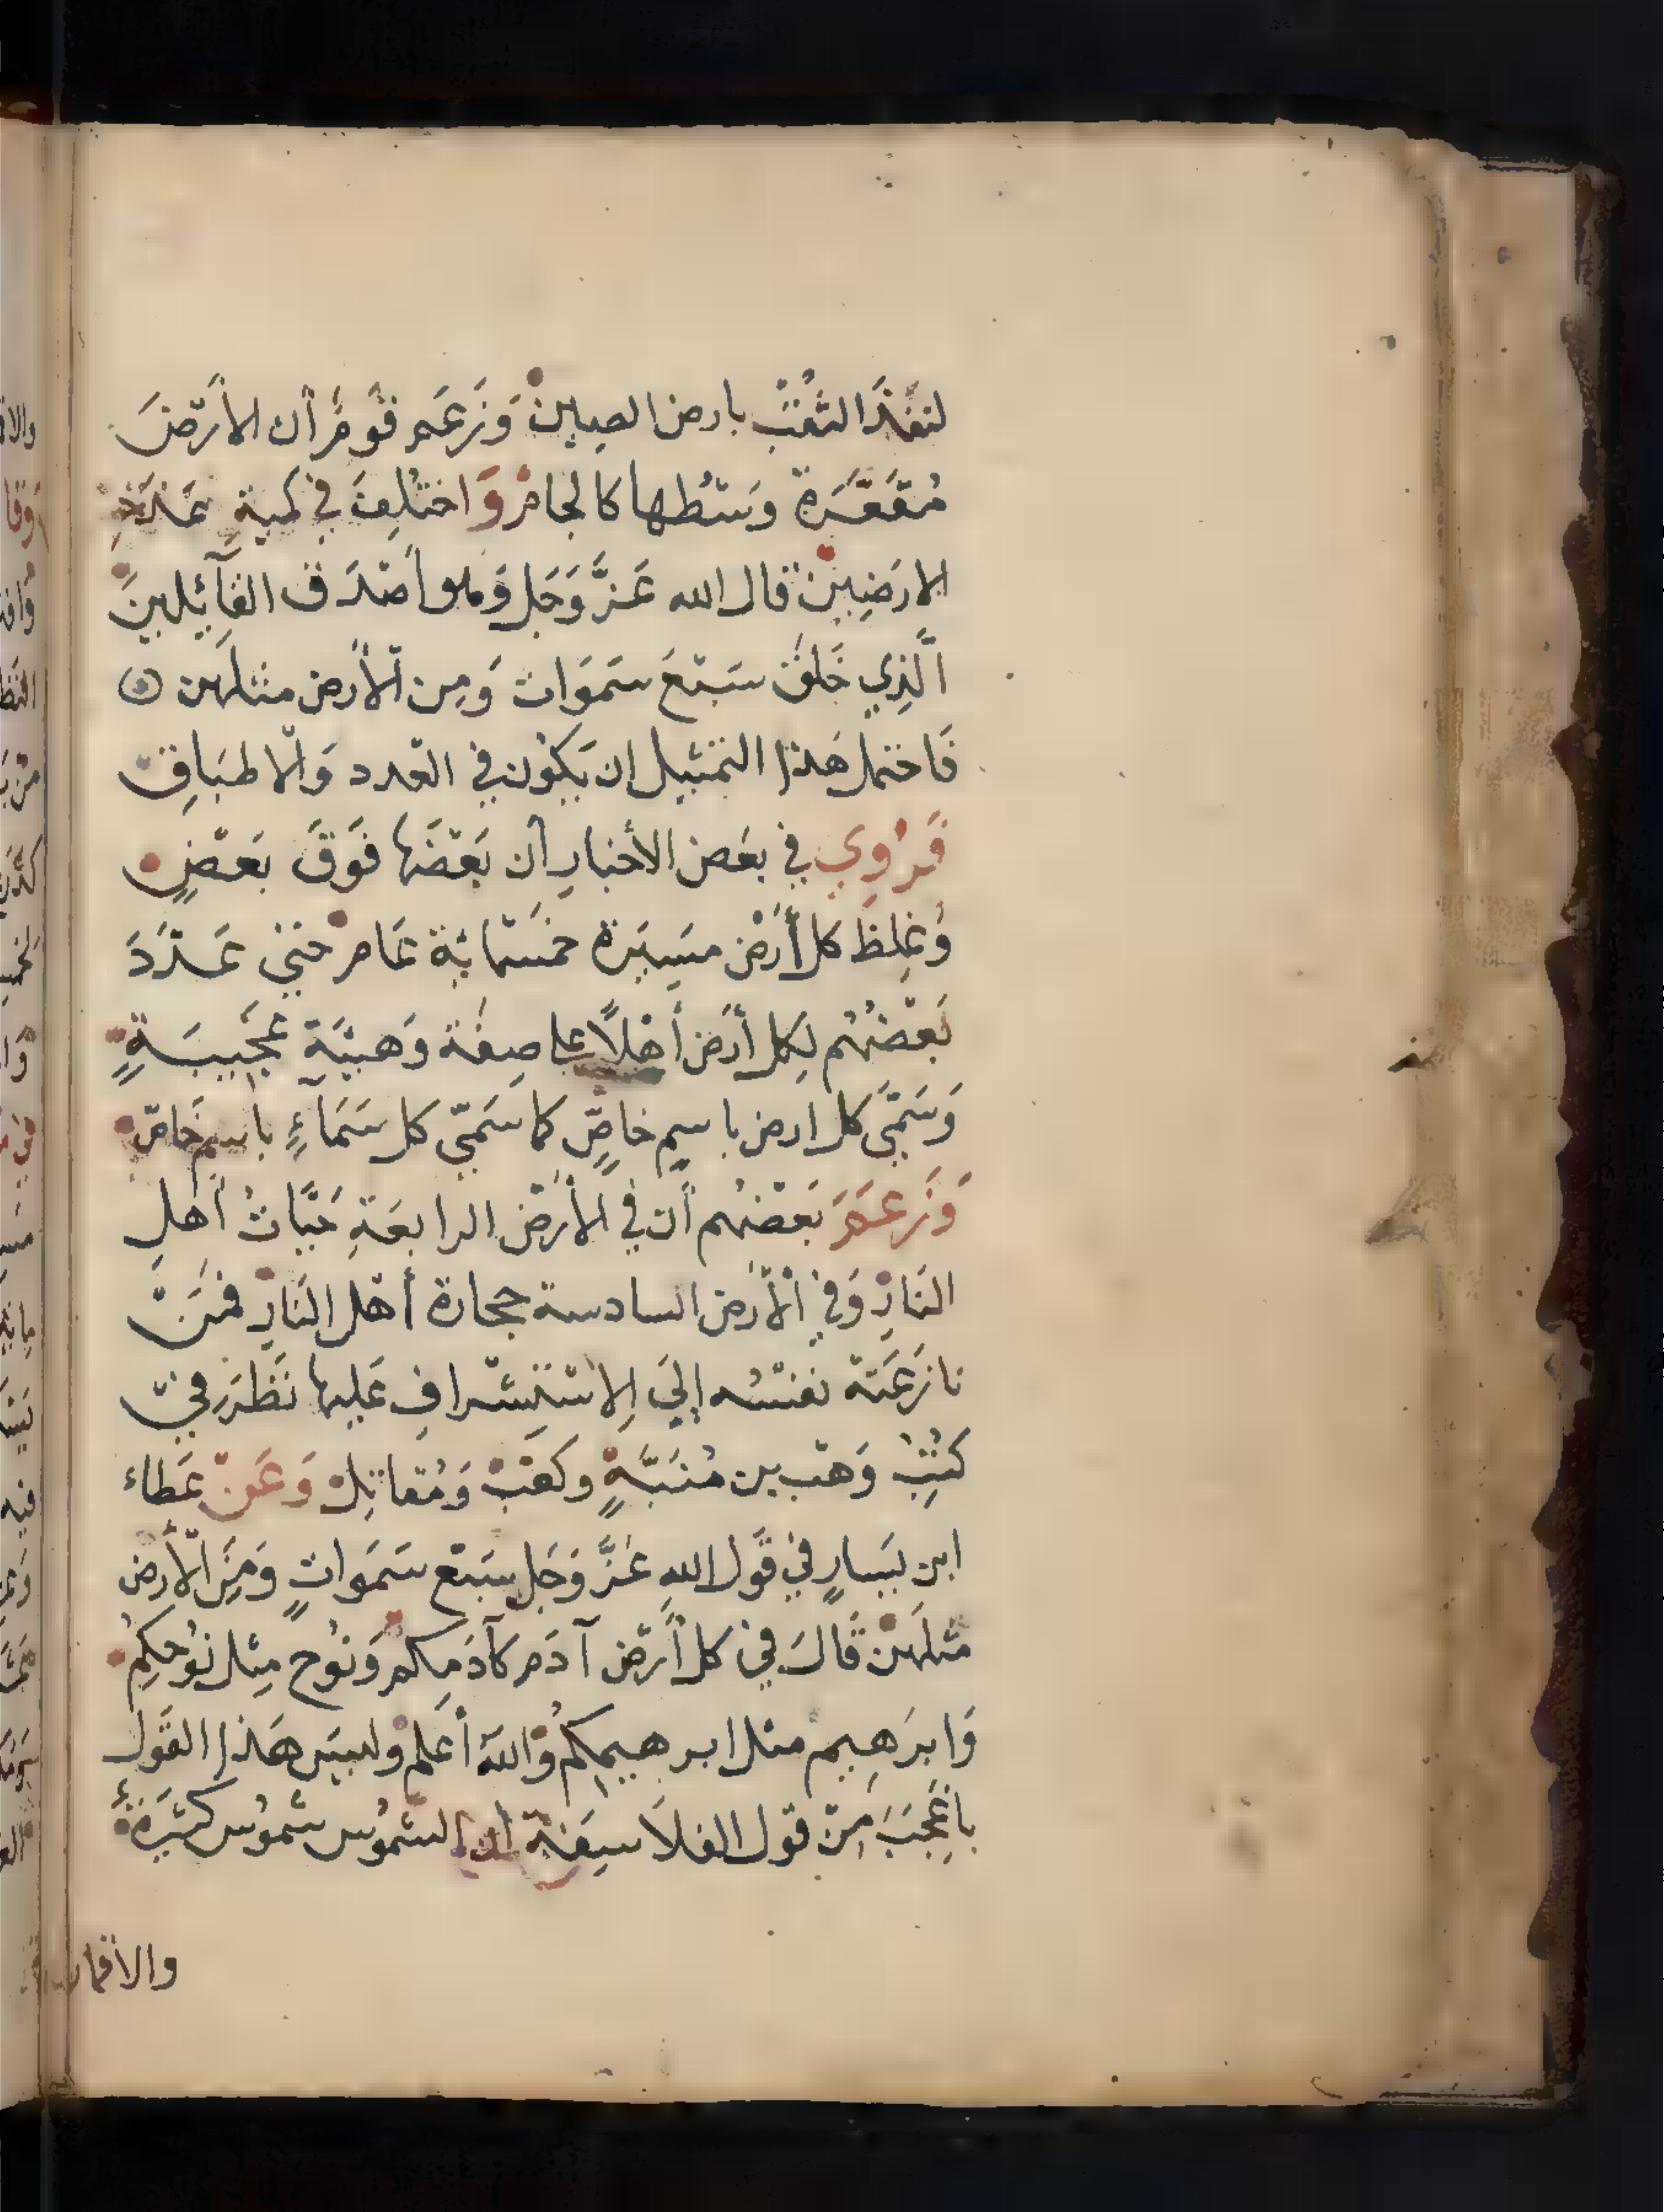 لنفذ الثقب بارض الصين وَزَعَم قَومٌ أن الأرْضَ
مُقَعَّرَة وَسْطها كالجام وَاختُلِفَ في كمية عَدَد
الارَضِينْ قال الله عَزَّ وَجَل وَهو أصْدَق القآئلينَ
الَّذِي خَلَقَ سَبْعَ سَمَوَات وَمِن الأرض مثلهن
فَاحتمل هَذا التمثيل ان يَكُون في العَدد وَالاطبَاقِ
فَرُوِي في بعَض الأخبارِ أن بَعْضَهَا فَوَقَ بَعْضٍ
وَغِلظَ كل أرْض مسَِيَرة خمسَمائة عَام حتي عَدَّدَ
بَعْضُهُم لِكل أرَض أهْلًا علي صِفَة وَهيئَةٍ عَجَيبَةٍ
وَسَمّي كل ارض باسمٍ خاصٍّ كما سَمّي كل سَمَآءٍ باسمٍ خَاصّ
وَزَعَمَ بَعْضُهُم أن في الأرْض الرابعَةِ حَيَّاتُ أَهلِ
النَارِ وَفي الأرَض السادسة حجارة أهْل النَارِ فمَنْ
نازَعَتْه نفسُه إليَ الِاسْتِشْرافِ عَليها نَظَرَ فيْ
كتُبُ وَهْب بن مُنَبَّهٍ وكَعْبْ وَمُقاتِلْ وَعَنْ عَطاء
ابن يسَارٍ في قَول اللهِ عَزَّ وَجَل سَبْع سَمَواتٍ وَمِنَ الأرض
مثلَهنْ قَالَ في كل أرْض آدَم كآدَمِكم وَنُوح مِثل نوُحِكمُ
وَابرَهِيم مثل ابرهيمِكمُ وَاللهَ أعَلم وليسَ هَذا القَول
باعْجَبَ مِنْ قول الفلَاسِفَة ان الشموُس شموُس كثيَرةٌ
والاقمار